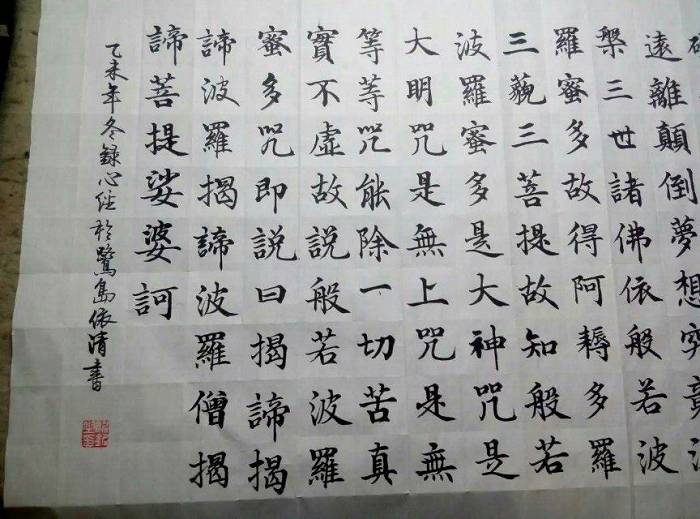 遠離顛倒夢想究竟
槃三世諸佛依般若波
羅蜜多故得阿耨多羅
三藐三菩提故知般若
波羅蜜多是大神咒是
大明咒是無上咒是無
等等咒能除一切苦真
實不虛故說般若波羅
蜜多咒即說曰揭諦揭
諦波羅揭諦波羅僧揭
諦菩提娑婆訶
乙未年冬録心经於鷺島依清書